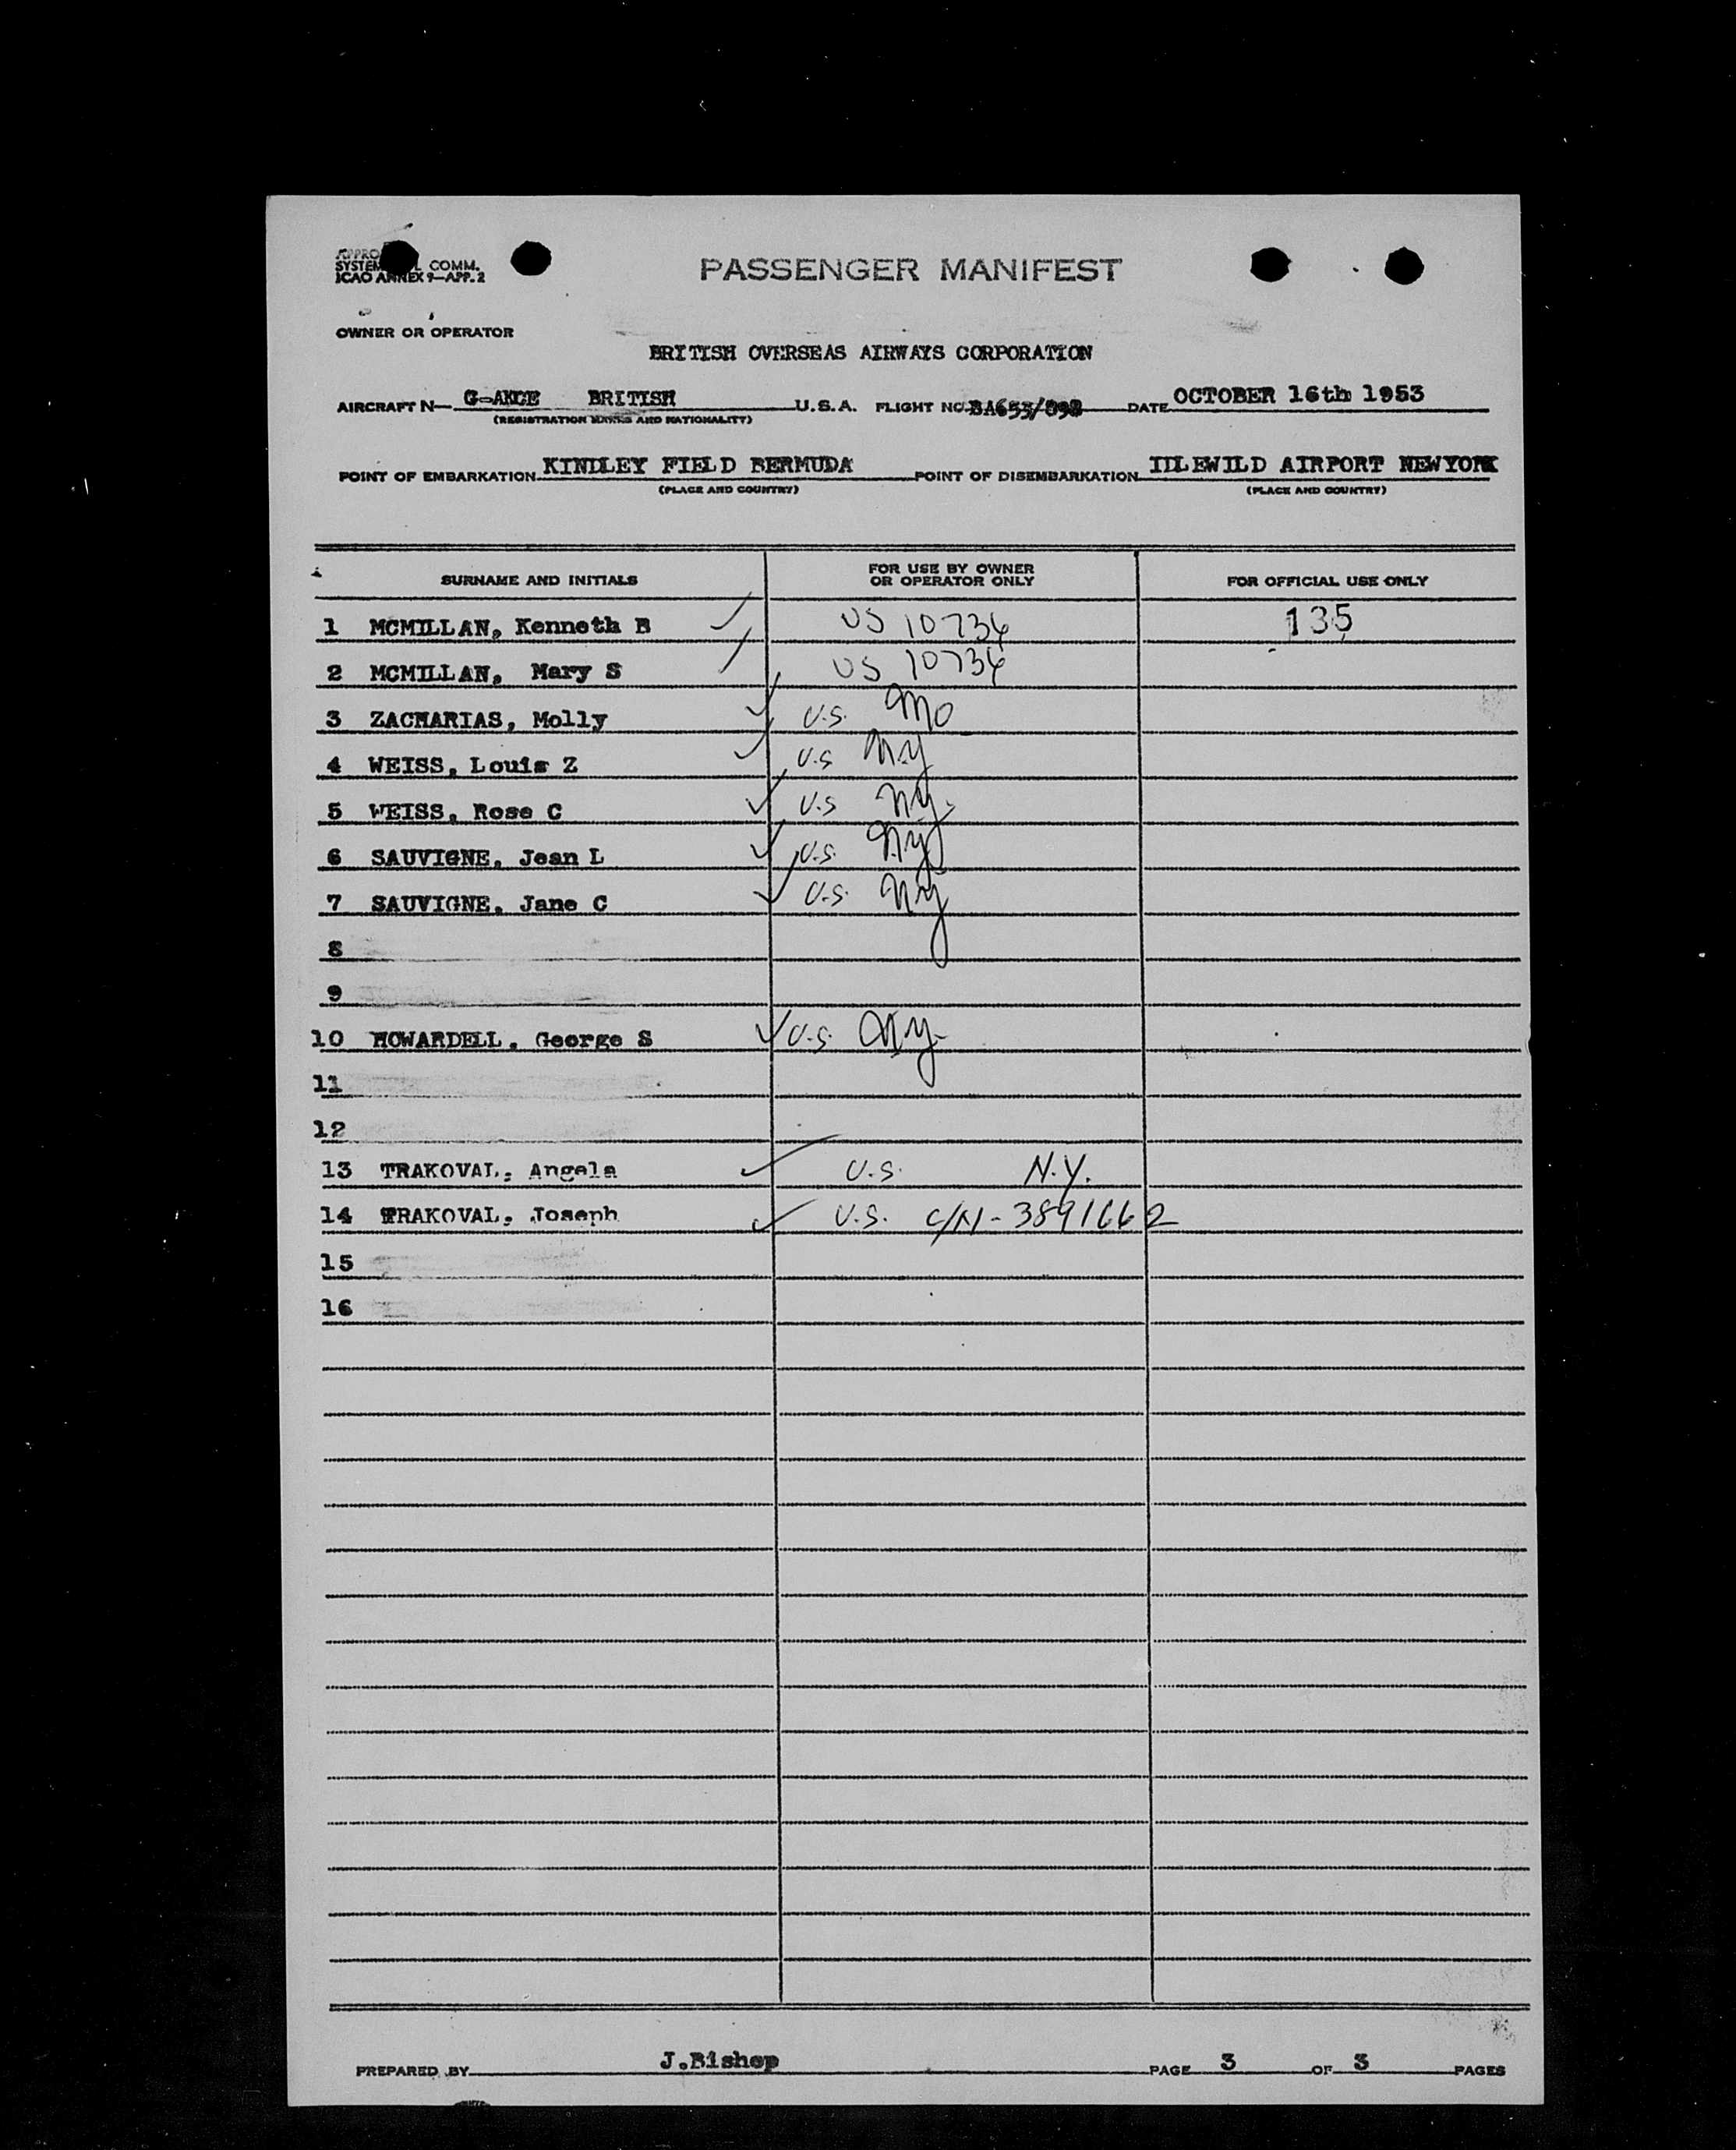 PASSENGER MANIFEST
COMM.
ICAO ANNEX 9—APP. 2
OWNER OR OPERATOR
BRITISH OVERSEAS AIRWAYS CORPORATION
AIRCRAFT N— BRITISH U.S.A. FLIGHT NO. DATE OCTOBER 16th 1953
(REGISTRATION MARKS AND NATIONALITY)
POINT OF EMBARKATION KINDLEY FIELD BERMUDA POINT OF DISEMBARKATION IDLEWILD AIRPORT NEWYORK
(PLACE AND COUNTRY) (PLACE AND COUNTRY)
SURNAME AND INITIALS FOR USE BY OWNER OR OPERATOR ONLY FOR OFFICIAL USE ONLY
1 MCMILLAN, Kenneth B US 10734 135
2 MCMILLAN, Mary S US 10734
3 ZACHARIAS, Molly U.S. Mo
4 WEISS, Louis Z U.S N.Y
5 WEISS, Rose C U.S N.Y.
6 SAUVIGNE, Jean L U.S. N.Y
7 SAUVIGNE, Jane C U.S. N.Y
8
9
10 HOWARDELL, George S U.S. N.Y.
11
12
13 TRAKOVAL, Angela U.S. N.Y.
14 TRAKOVAL, Joseph U.S. C/N - 3891662
15
16
PREPARED BY J.Bishop PAGE 3 OF 3 PAGES